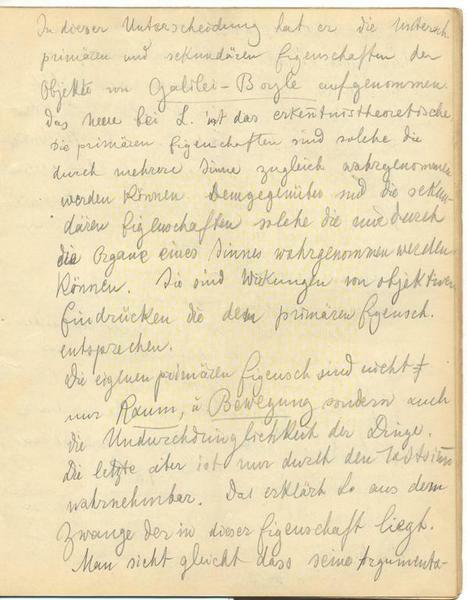 In dieser Unterscheidung hat er die Untersch.
primären und sekundären Eigenschaften der
Objekte von Galilei-Boyle aufgenommen
Das neue bei L. ist das erkentnistheoretische
Die primären Eigenschaften sind solche die
durch mehrere Sinne zugleich wahrgenommen
werden können Demgegenüber sind die sekun-
dären Eigenschaften solche die nur durch
die Organe eines Sinnes wahrgenommen werden
können. Sie sind Wirkungen von objektiven
Eindrücken die dem primären Eigensch.
entsprechen.
Die primären Eigensch sind nicht
nur Raum, u Bewegung sondern auch
die Undurchdringlichkeit der Dinge.
Die letzte aber ist nur durch den Tastsinn
wahrnehmbar. Das erklärt L. aus dem
Zwange der in dieser Eigenschaft liegt.
Man sieht gleicht dass seine Argumenta-